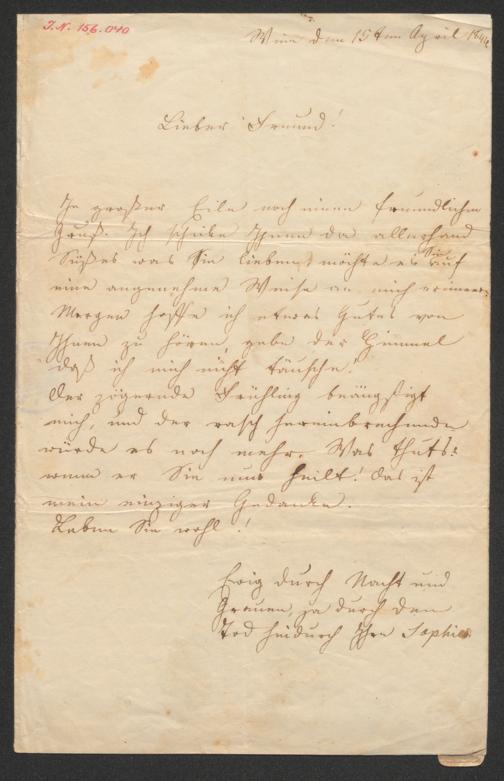 J. N. 156.040
Wien den 15ten April 184
Lieber Freund!
In großer Eile noch einen freundlichen
Gruß. Ich schicke Ihnen da allerhand
Süßes was Sie lieben, möchte es Sie auf
eine angenehme Weise an mich erinnern.
Morgen hoffe ich etwas Gutes von
Ihnen zu hören, gebe der Himmel
daß ich mich nicht täusche!
Der zögernde Frühling beängstigt
mich, und der rasch hereinbrechende
würde es noch mehr. Was thuts!
wenn er Sie nur heilt! das ist
mein einziger Gedanke.
Leben Sie wohl!
Ewig durch Nacht und
Grauen, ja durch den
Tod hindurch Ihre Sophie